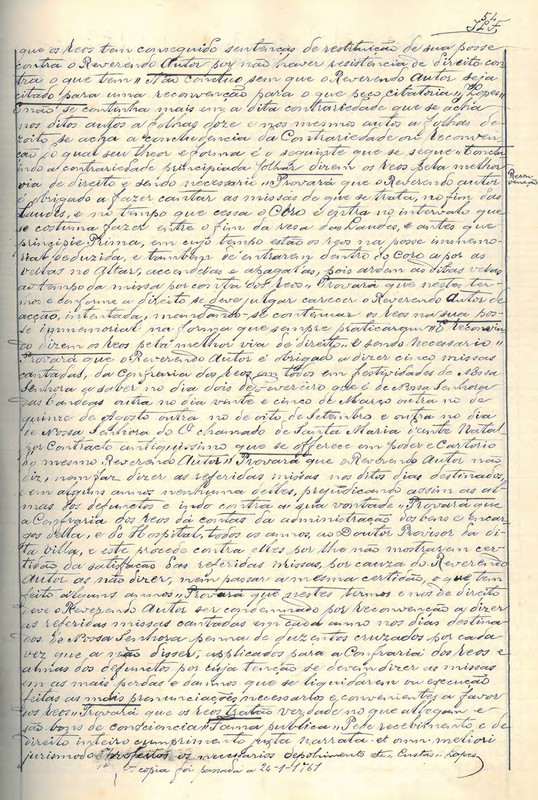 54
que os reos tem conseguido sentenças de restituição de sua posse
contra o Reverendo Autor por não haver resistencia de direito con
tra o que tem" Não conclue sem que o Reverendo Autor seja
citado para uma reconvenção para o que peço citatoria" Lopes"
E não se continha mais em a dita contrariedade que se acha
nos ditos autos a folhas doze e nos mesmo autos a folhas de
zoito se acha a concludencia da Contrariedade em Reconven
ção do qual seu theor e forma é o seguinte que se segue" Conclu
indo a contrariedade principiada folhas direm os reos pela melhor
via de direito e sendo necessario" Provará que o Reverendo autor
é obrigado a fazer cantar as missas de que se trata, no fim das
Laudes, e no tempo que cessa o Côro e entra no intervalo que
se costuma fazer entre o fim da resa das Laudes, e antes que
principie Prima, em cujo tempo estão os reos na posse immemo
rial deduzida, e tambem se entrarem dentro do coro a por as
vellas no Altar, accendel-as e apagal-as, pois ardem as ditas vellas
ao tempo da missa por conta dos reos" Provará que nestes ter-
mos e conforme a direito se deve julgar carecer o Reverendo Autor de
acção, intentada, mandando-se continuar os reos na sua pos-
se immemorial na forma que sempre praticaram" E reconvin
do direm os reos pela melhor via de direito, e sendo necessario"
Provará que o Reverendo Autor é obrigado a dizer cinco missas
cantadas, da Confraria dos reos em todos em festividades de Nossa
Senhora a saber no dia dois de Fevereiro que é de Nossa Senhora
das Candeas outra no dia vinte e cinco de Março outra no de
quinze de Agosto outra no de oito de Setembro e outra no dia
de Nossa Senhora do O chamado de Santa Maria d'ante Natal
por Contracto antiquissimo que se offerece em poder e Cartorio
do mesmo Reverendo Autor" Provará que o Reverendo Autor não
diz, nem faz dizer as referidas missas nos ditos dias destinados,
e em alguns annos nenhuma delles, prejudicando assim as al-
mas dos defunctos e indo contra a sua vontade" Provará que
a Confraria dos reos dá contas da administração dos bens e encar-
gos della, e do Hospital, todos os annos, ao Doutor Provisor da di-
ta villa, e este procede contra elles por lhe não mostrarem cer-
tidão da satisfação das referidas missas, por cauza do Reverendo
Autor as não dizer, nem passar a mesma certidão, o que tem
feito alguns annos" Provará que nestes termos e nos de direito
deve o Reverendo Autor ser condemnado por reconvenção a dizer
as referidas missas cantadas em cada anno nos dias destina
dos de Nossa Senhora penna de duzentos cruzados por cada
vez que a não disser, applicados para a Confraria dos reos e
almas dos defunctos por cuja tenção se devem dizer as missas
em as mais perdas e damnos que se liquidarem ou execução
feitas as mais pronunciações necessarios e, convenientes a favor
dos reos" Provará que os reos tratão verdade no que allegam e
são bons de consciencia" Fama publica" Pede recebimento e de
direito inteiro cumprimento justa narrata et omni meliori
juris modo os necessarios depoimento Custas" Lopes
copia foi passada a 24-1-1961
Recon
venção